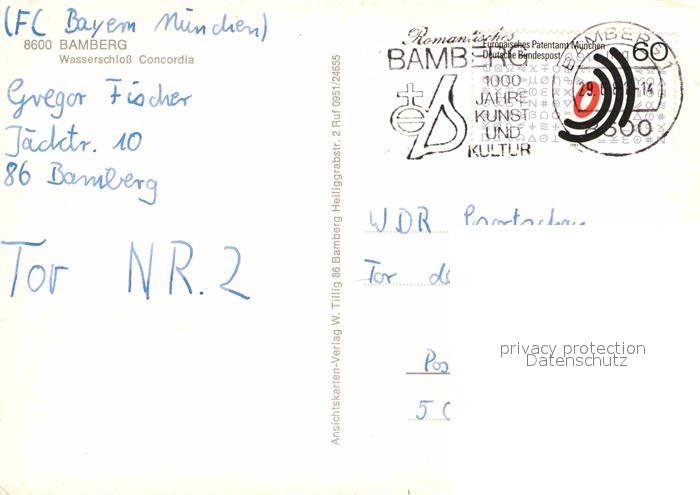 (FC Bayern München)
8600 BAMBERG
Wasserschloß Concordia
Gregor Fischer
Jäcktr. 10
86 Bamberg
Tor NR. 2
Ansichtskarten-Verlag W. Tillig 86 Bamberg Heiliggrabstr. 2 Ruf 0951/24655
Romantisches
BAMBERG
1000
JAHRE
KUNST
UND
KULTUR
Europäisches Patentamt München
Deutsche Bundespost
60
BAMBERG 1
8600
WDR Sportschau
Tor
5
privacy protection
Datenschutz